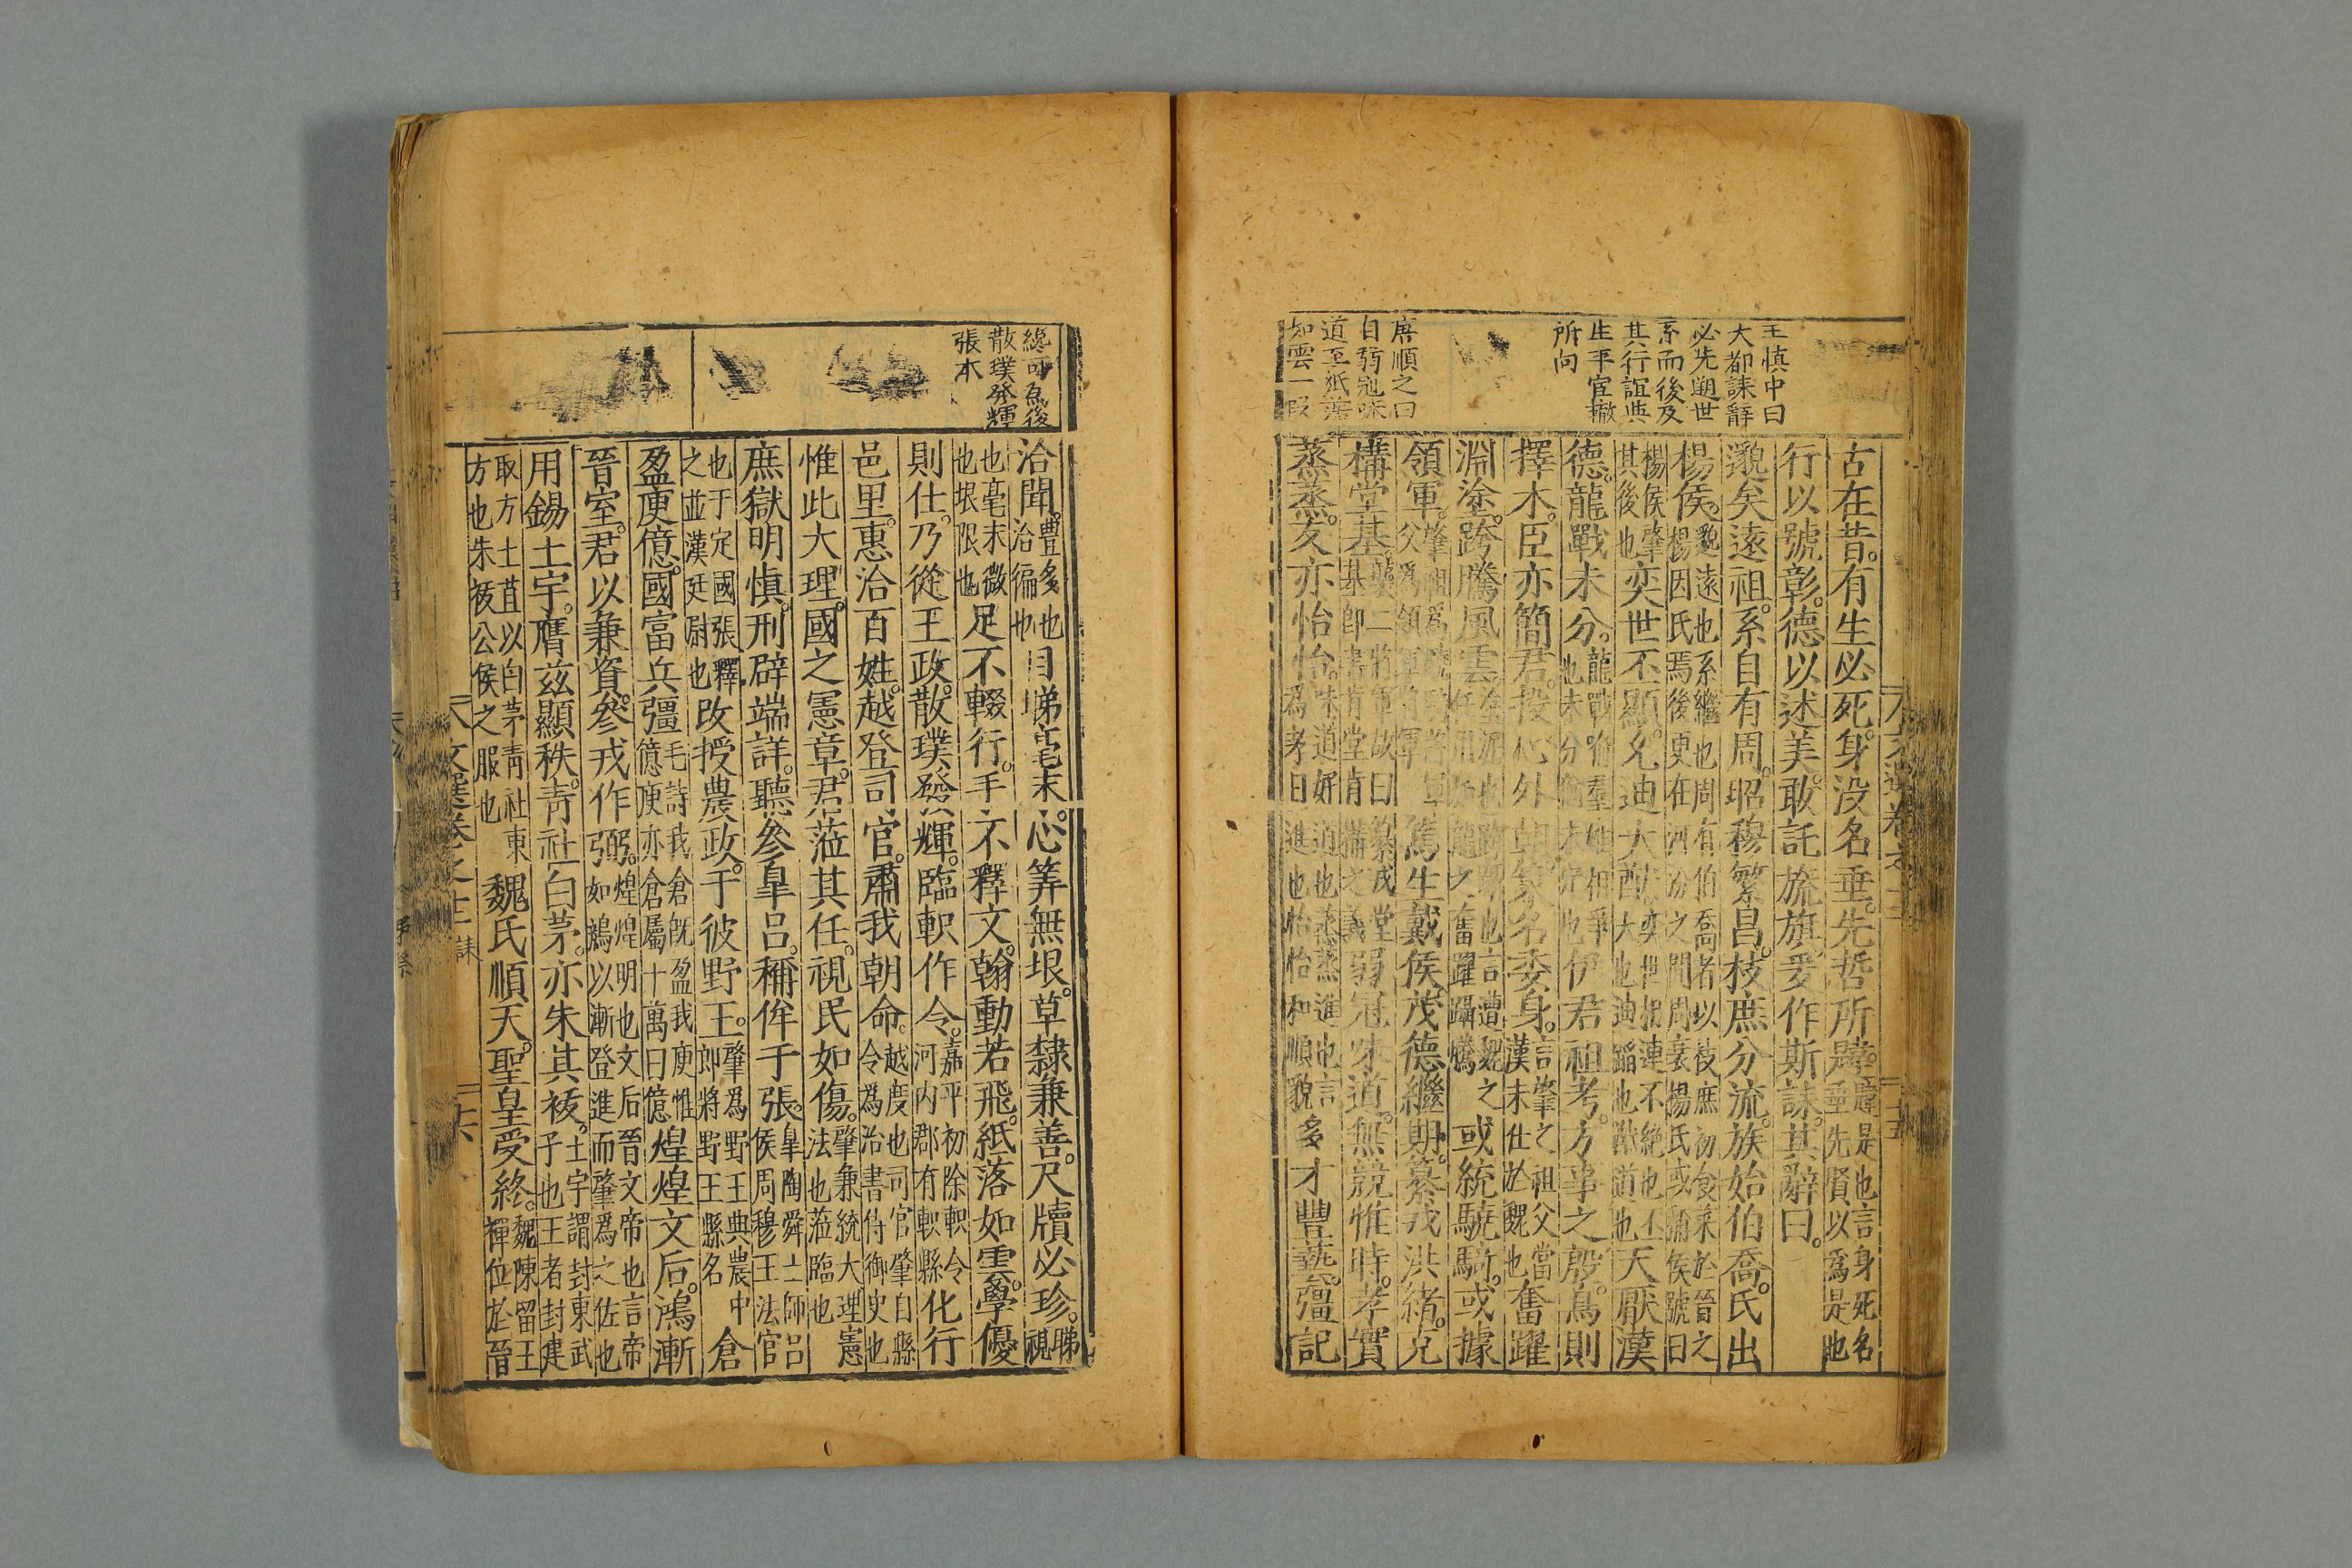 王慎中曰
大都誄辭
必先遡世
系而後及
其行誼與
生平官轍
所向
唐順之曰
自弱冠味
道至紙落
如雲一段
古在昔。有生必死。身没名垂。先哲所韙。韙是也言身死名垂先賢以爲是也
行以號彰。德以述美。敢託旒旗。爰作斯誄。其辭曰。
邈矣遠祖。系自有周。昭穆繁昌。枝庶分流。族始伯喬。氏出
楊侯。邈遠也系繼也周有伯喬者以枝庶初食菜於晉之楊因氏焉後更在河汾之間周衰楊氏或稱侯號曰
楊侯肇其後也奕世丕顯。允迪大猷。奕世相連不絶也丕大也迪蹈也猷道也天厭漢
德。龍戰未分。龍戰喻羣雄相爭也未分猶未定也伊君祖考。方事之殷。鳥則
擇木。臣亦簡君。投心外朝。策名委身。言肇之祖父當漢末仕於魏也奮躍
淵塗。跨騰風雲。或統驍騎。或據
領軍。篤生戴侯。茂德繼期。纂戎洪緒。克
構堂基。弱冠味道。無競惟時。孝實
蒸蒸。友亦怡怡。味道好道也蒸蒸進也言爲孝日進也怡怡和順貌多才豐藝。彊記
總可爲後
散璞發輝
張本
洽聞。豐多也洽徧也目睇毫末。心筭無垠。草隸兼善。尺牘必珍。睇視
也毫末微也垠限也足不輟行。手不釋文。翰動若飛。紙落如雲。學優
則仕。乃從王政。散璞發輝。臨軹作令。嘉平初除軹令河内郡有軹縣化行
邑里。惠洽百姓。越登司官。肅我朝命。越度也司官肇自縣令爲治書侍御史也
惟此大理。國之憲章。君蒞其任。視民如傷。肇兼統大理憲法也蒞臨也
庶獄明慎。刑辟端詳。聽參臯吕。稱侔于張。臯陶舜士師吕侯周穆王法官
也于定國張釋之並漢廷尉也改授農政。于彼野王。肇爲野王典農中郎將野王縣名倉
盈庾億。國富兵彊。毛詩我倉旣盈我庾惟億庾亦倉屬十萬曰億煌煌文后。鴻漸
晉室。君以兼資。參戎作弼。煌煌明也文后晉文帝也言帝如鴻以漸登進而肇爲之佐也
用錫土宇。膺兹顯秩。青社白茅。亦朱其袚。土宇謂封東武子也王者封建
取方土苴以白茅青社東方也朱袚公侯之服也魏氏順天。聖皇受終。魏陳留王禪位於晉
文選卷之十二 誄 十六